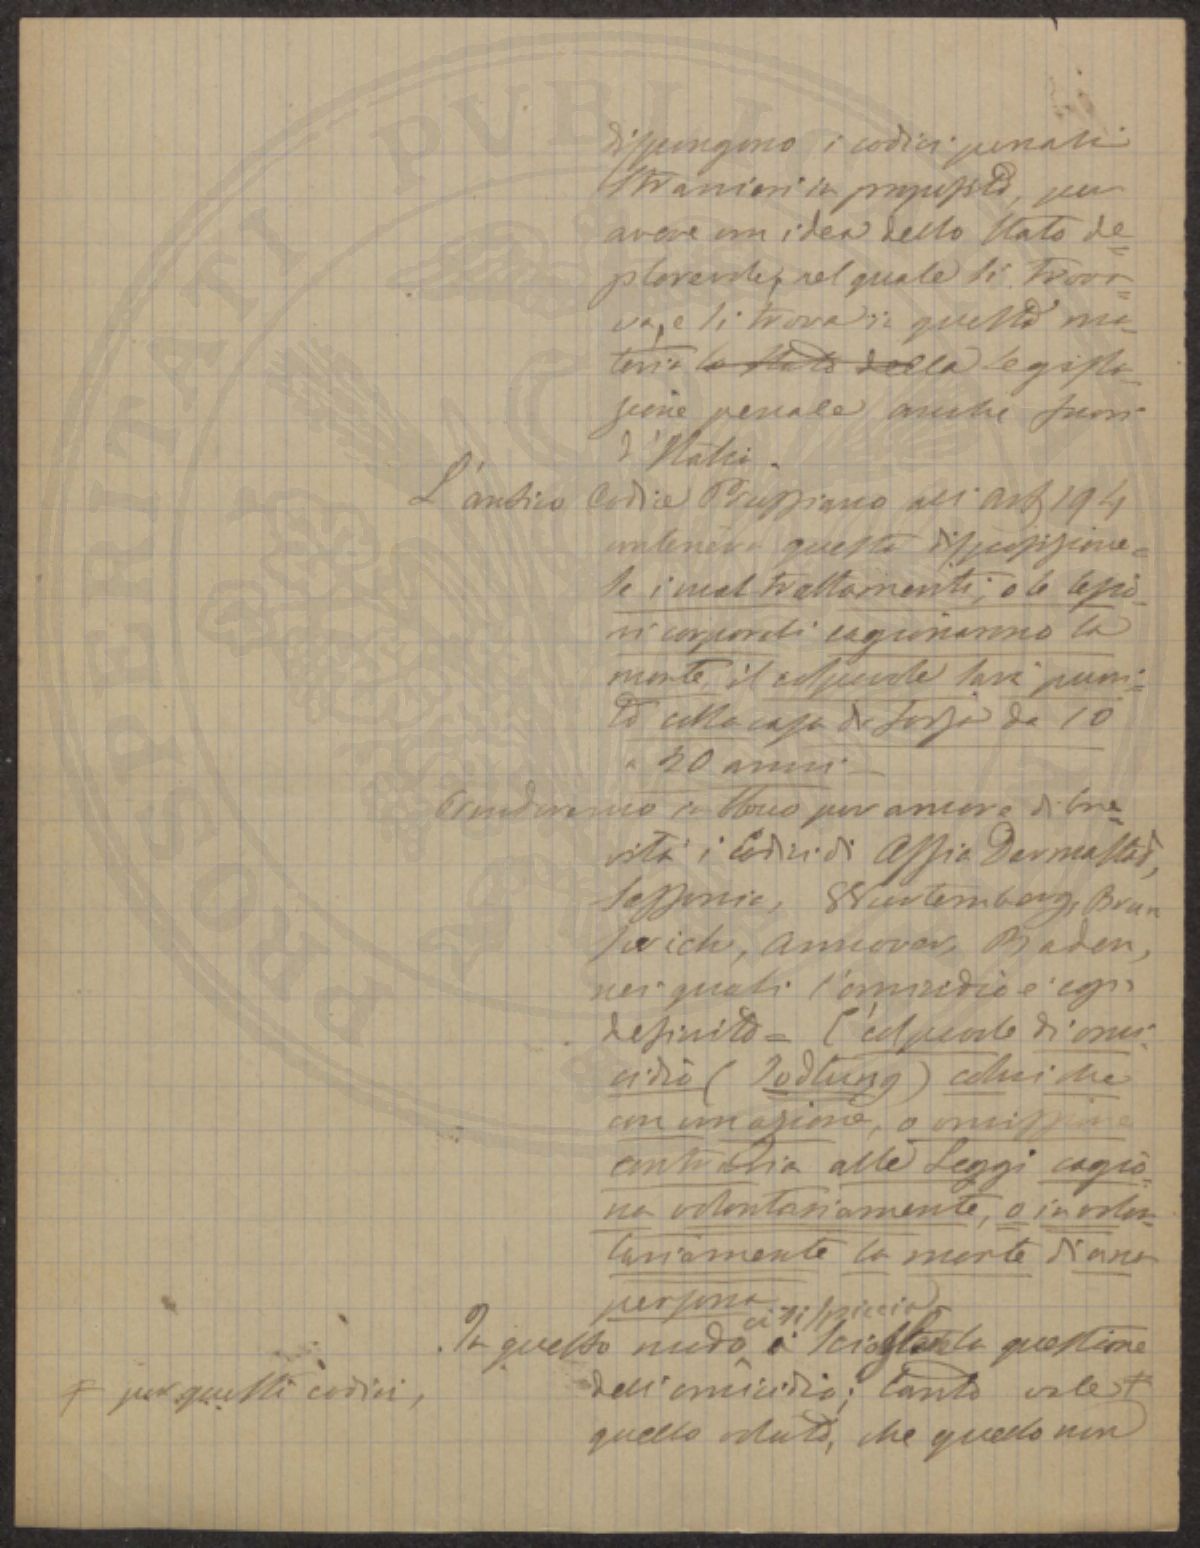 dispongono i codici penali
stranieri in proposito, per
avere un idea dello stato de=
plorevole, nel quale si trova=
va, e si trova in questa ma=
teria lo stato della legisla=
zione penale anche fuori
d'Italia.
L'antico Codice Prussiano all'art 194
conteneva questa disposizione=
Se i maltrattamenti, o le lesio=
ni corporali cagionarono la
morte, il colpevole sarà puni=
to colla casa di forza da 10
a 20 anni—
in blocco per amore di bre=
vità i Codici di Assia Darmastad,
Sassonia, Wurtemberg, Brun
swich, Annover, Baden,
nei quali l'omicidio è così
definito= È colpevole di omi=
cidio (Todtung) colui che
con un azione, o omissione
contraria alle Leggi cagio=
na volontariamente, o involon=
tariamente la morte di una
persona
In questo modo si spiccia la questione
dell'omicidio; tanto vale +
+ per quelli codici,
quello voluto, che quello non
PROSPERITATI PUBLIC